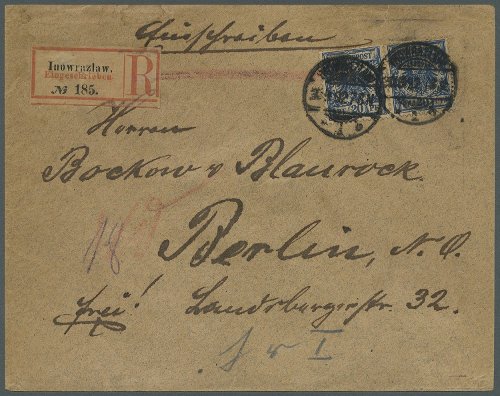 Einschreiben
Inowrazlaw.
Eingeschrieben.
№ 185.
R
Herren
Bockow v Blaurock
Berlin, N.O.
frei!
Landsbergerstr. 32.
I